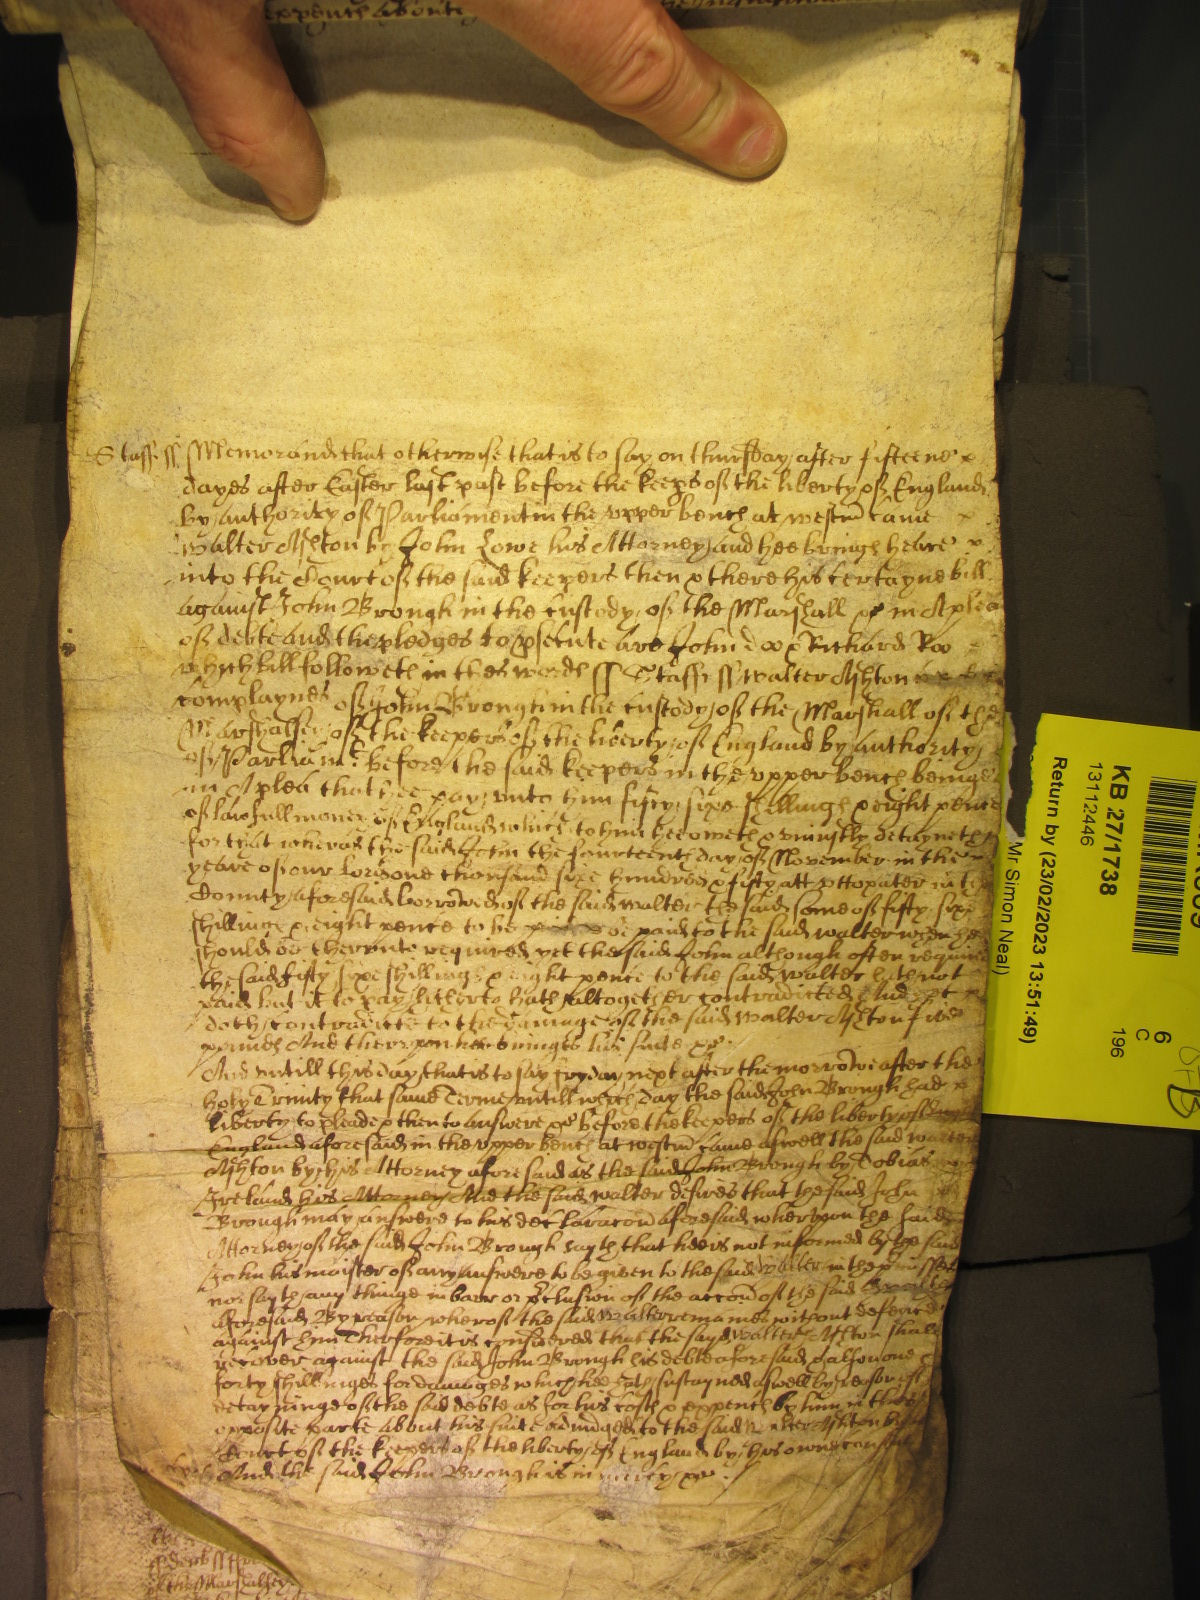 expence about
Staff ss Memorand that otherwise that is to say on thursday after fifteene x
dayes after Easter last past before the keeps of the liberty of England
by authority of Parliament in the upper bench at westm came x
walter Ashton by John Lowe his Attorney and hee bringes heare x
into the Court of the said keepers then & there his certayne bill
against John Brough in the custody of the Marshall &c in A plea
of debte and the pledges to psecute are John doo & Richard Roo
which bill followeth in thes words ss Staff ss walter Ashton
complaynes of John Brough in the custody of the Marshall of the
Marshalsey of the keepers of the liberty of England by authority
of Parliamt before the said keepers in the upper bench beinge
in A plea that hee pay unto him fifty sixe shillings & eight pence
of lawfull money of England which to him hee oweth & uniustly detayneth
for that wheras the said John the fourteenth day of November in the
yeare of our Lord one thousand sixe hundred & fifty att uttoxater in the
County aforesaid borrowed of the said walter the said some of fifty sixe
shillings & eight pence to be paid to the said walter when hee
should be therunto required yet the said John although often required
the said fifty sixe shillings & eight pence to the said walter hath not
paid but it to pay hitherto hath altogether contradicted And yet
doth contradicte to the damage of the said walter Ashton five
pounds And therupon hee bringes his suite &c
And untill this day that is to say fryday next after the morrowe after the
holy Trinity that same Terme untill which day the said John Brough had x
liberty to pleade & then to answere &c before the keepers of the liberty of
England aforesaid in the upper bench at westm came aswell the said walter
Ashton by his Attorney aforesaid as the said John Brough by Tobias
Ireland his Attorney And the said walter desires that the said John
Brough may answere to his declaracon aforesaid wherupon the said
Attorney of the said John Brough sayth that hee is not informed by the said
John his maister of any answere to be given to the said walter in the pmisses
nor sayth any thinge in barr or pclusion of the accon of the said walter
aforesaid By reason wherof the said walter remaines without defence
against him Therfore it is considered that the sayd walter Ashton shall
recover against the said John Brough his debte aforesaid & alsoe
forty shillinges for damages which hee hath sustayned aswell by reason of
detayninge of the said debte as for his costs & expences by him in this
opposite parte about his suite adiudged to the said walter Ashton by the
Court of the keepers of the liberty of England by his owne consent
And the said John Brough is in mercy &c
of the Marshalsey
KB 27/1738
13112446
Return by (23/02/2023 13:51:49)
Mr Simon Neal)
6
C
196